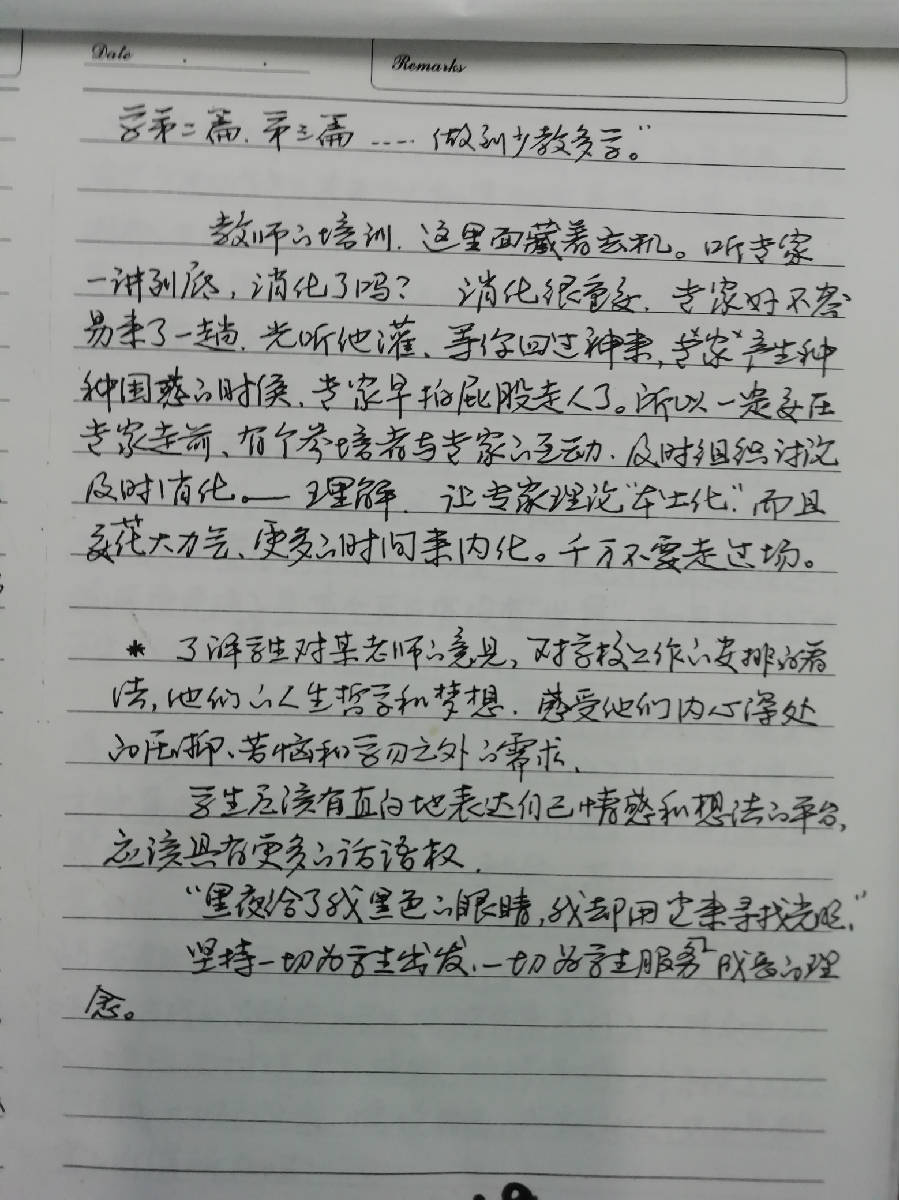 Date
Remarks
学第二篇、第三篇……做到少教多学。”
教师的培训,这里面藏着玄机。听专家
一讲到底,消化了吗? 消化很重要,专家好不容
易来了一趟,光听他灌、等你回过神来,“专家”产生种
种困惑的时候、专家早拍屁股走人了。所以一定要在
专家走前、有个参培者与专家的互动、及时组织讨论
及时消化。—理解,让专家理论“本土化”而且
要花大力气、更多的时间来内化。千万不要走过场。
* 了解学生对某老师的意见,对学校工作的安排的看
法,他们的人生哲学和梦想,感受他们内心深处
的压抑、苦恼和学习之外的需求、
学生应该有直白地表达自己情感和想法的平台,
应该具有更多的话语权.
“黑夜给了我黑色的眼睛,我却用它来寻找光明,”
坚持一切为学生出发、一切为学生服务 的理
念。